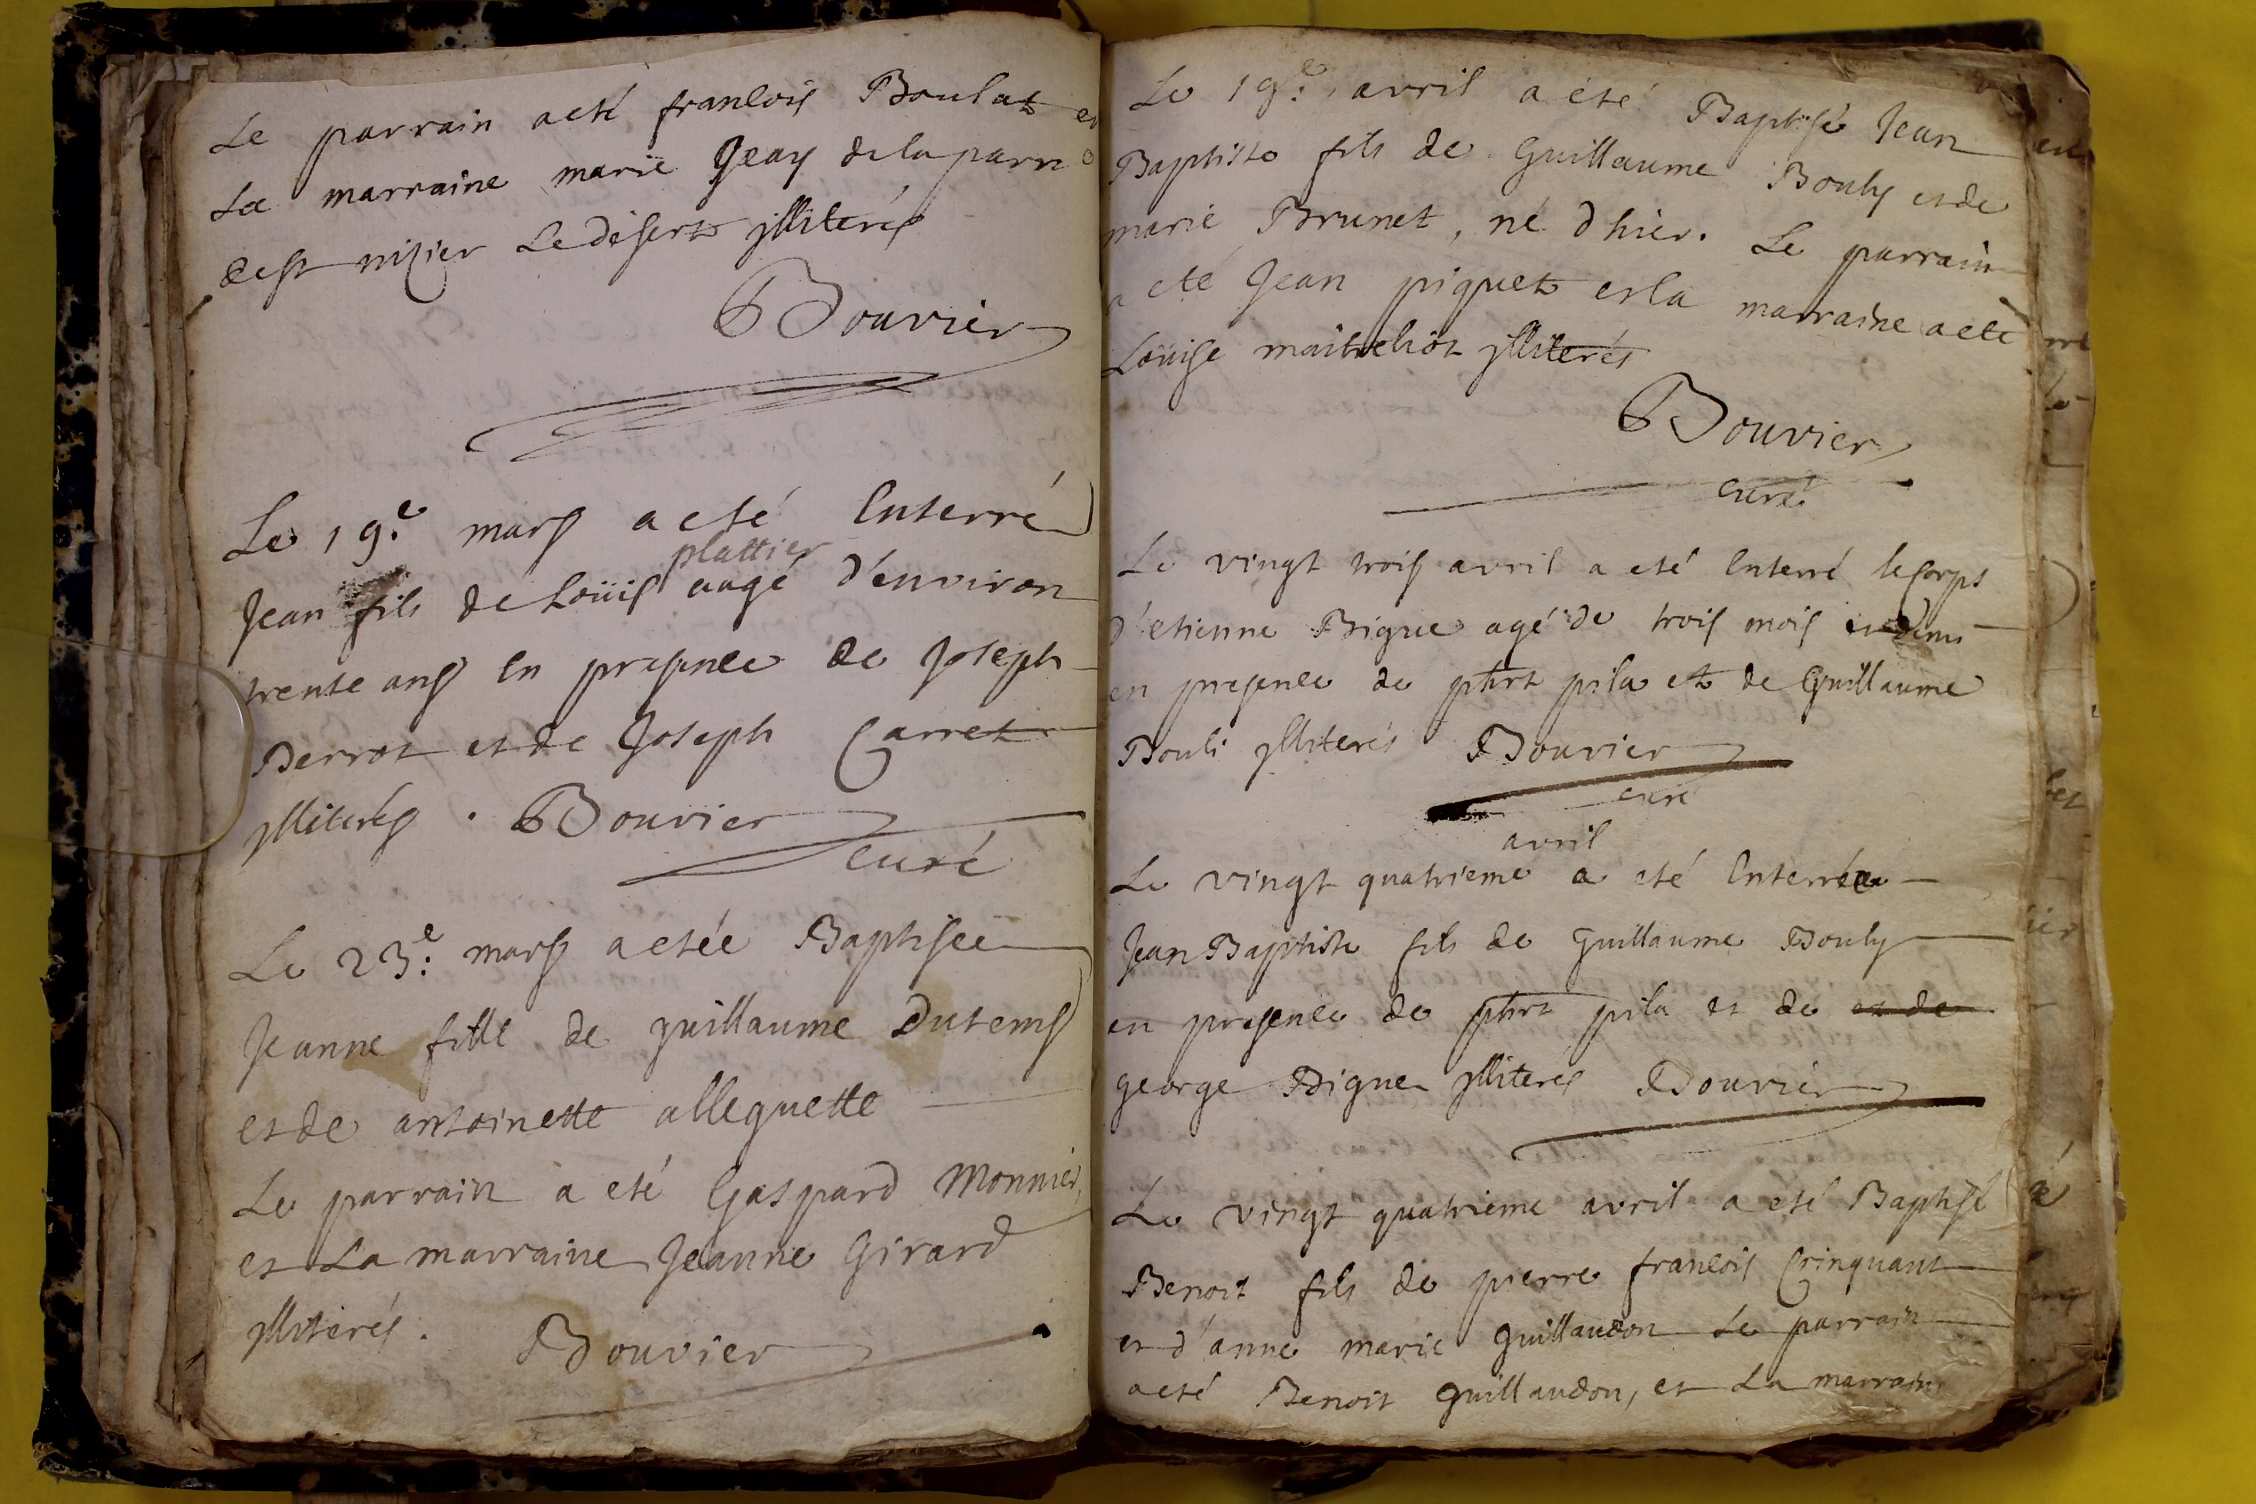 Le parrain a eté francois Boulat et
La marraine marie Jeay de la parr
de st nizier Le désert jlliterés
Bouvier
Le 19e mars a eté Enterré
plattier
Jean fils de Loüis aagé d'environ
trente ans En presence de Joseph
Perrot et de Joseph Carret
jlliterés . Bouvier
curé
Le 23e mars a etée Baptisée
Jeanne fille de guillaume Dutems
et de antoinette alleguette
Le parrain a eté Gaspard Monnier,
et La marraine Jeanne Girard
jlliterés . Bouvier
Le 19e avril a été Baptisé Jean
Baptiste fils de Guillaume Bouly et de
marie Brunet, né d'hier. Le parrain
a eté Jean piquet et la marraine a eté
Loüise maitrehiot jlliterés
Bouvier
curé
Le vingt trois avril a eté Enterré le corps
d'etienne Bigue agé de trois mois et demi
en presence de phrt pila et de Guillaume
Bouli jlliterés Bouvier
curé
avril
Le vingt quatrieme a eté Enterré
Jean Baptiste fils de Guillaume Bouly
en presence de phrt pila et de et de
george Bigue jlliterés Bouvier
Le vingt quatrieme avril a eté Baptisé
Benoit fils de pierre francois Crinquant
et d'anne marie guillaudon Le parrain
a eté Benoit guillaudon, et La marraine